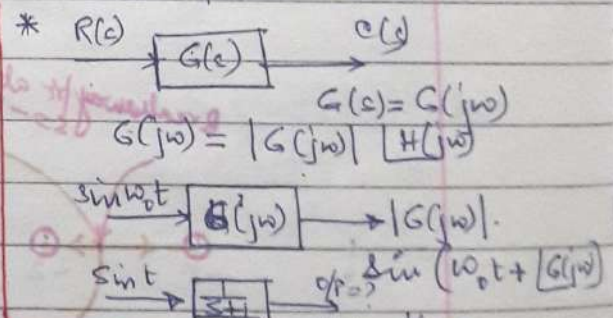 * R(s) G(s) C(s)
G(s) = G(jω)
G(jω) = |G(jω)| ∠H(jω)
sinω₀t G(jω) |G(jω)|.
sin (ω₀t + ∠G(jω)
sint 1/s+1 o/p=?